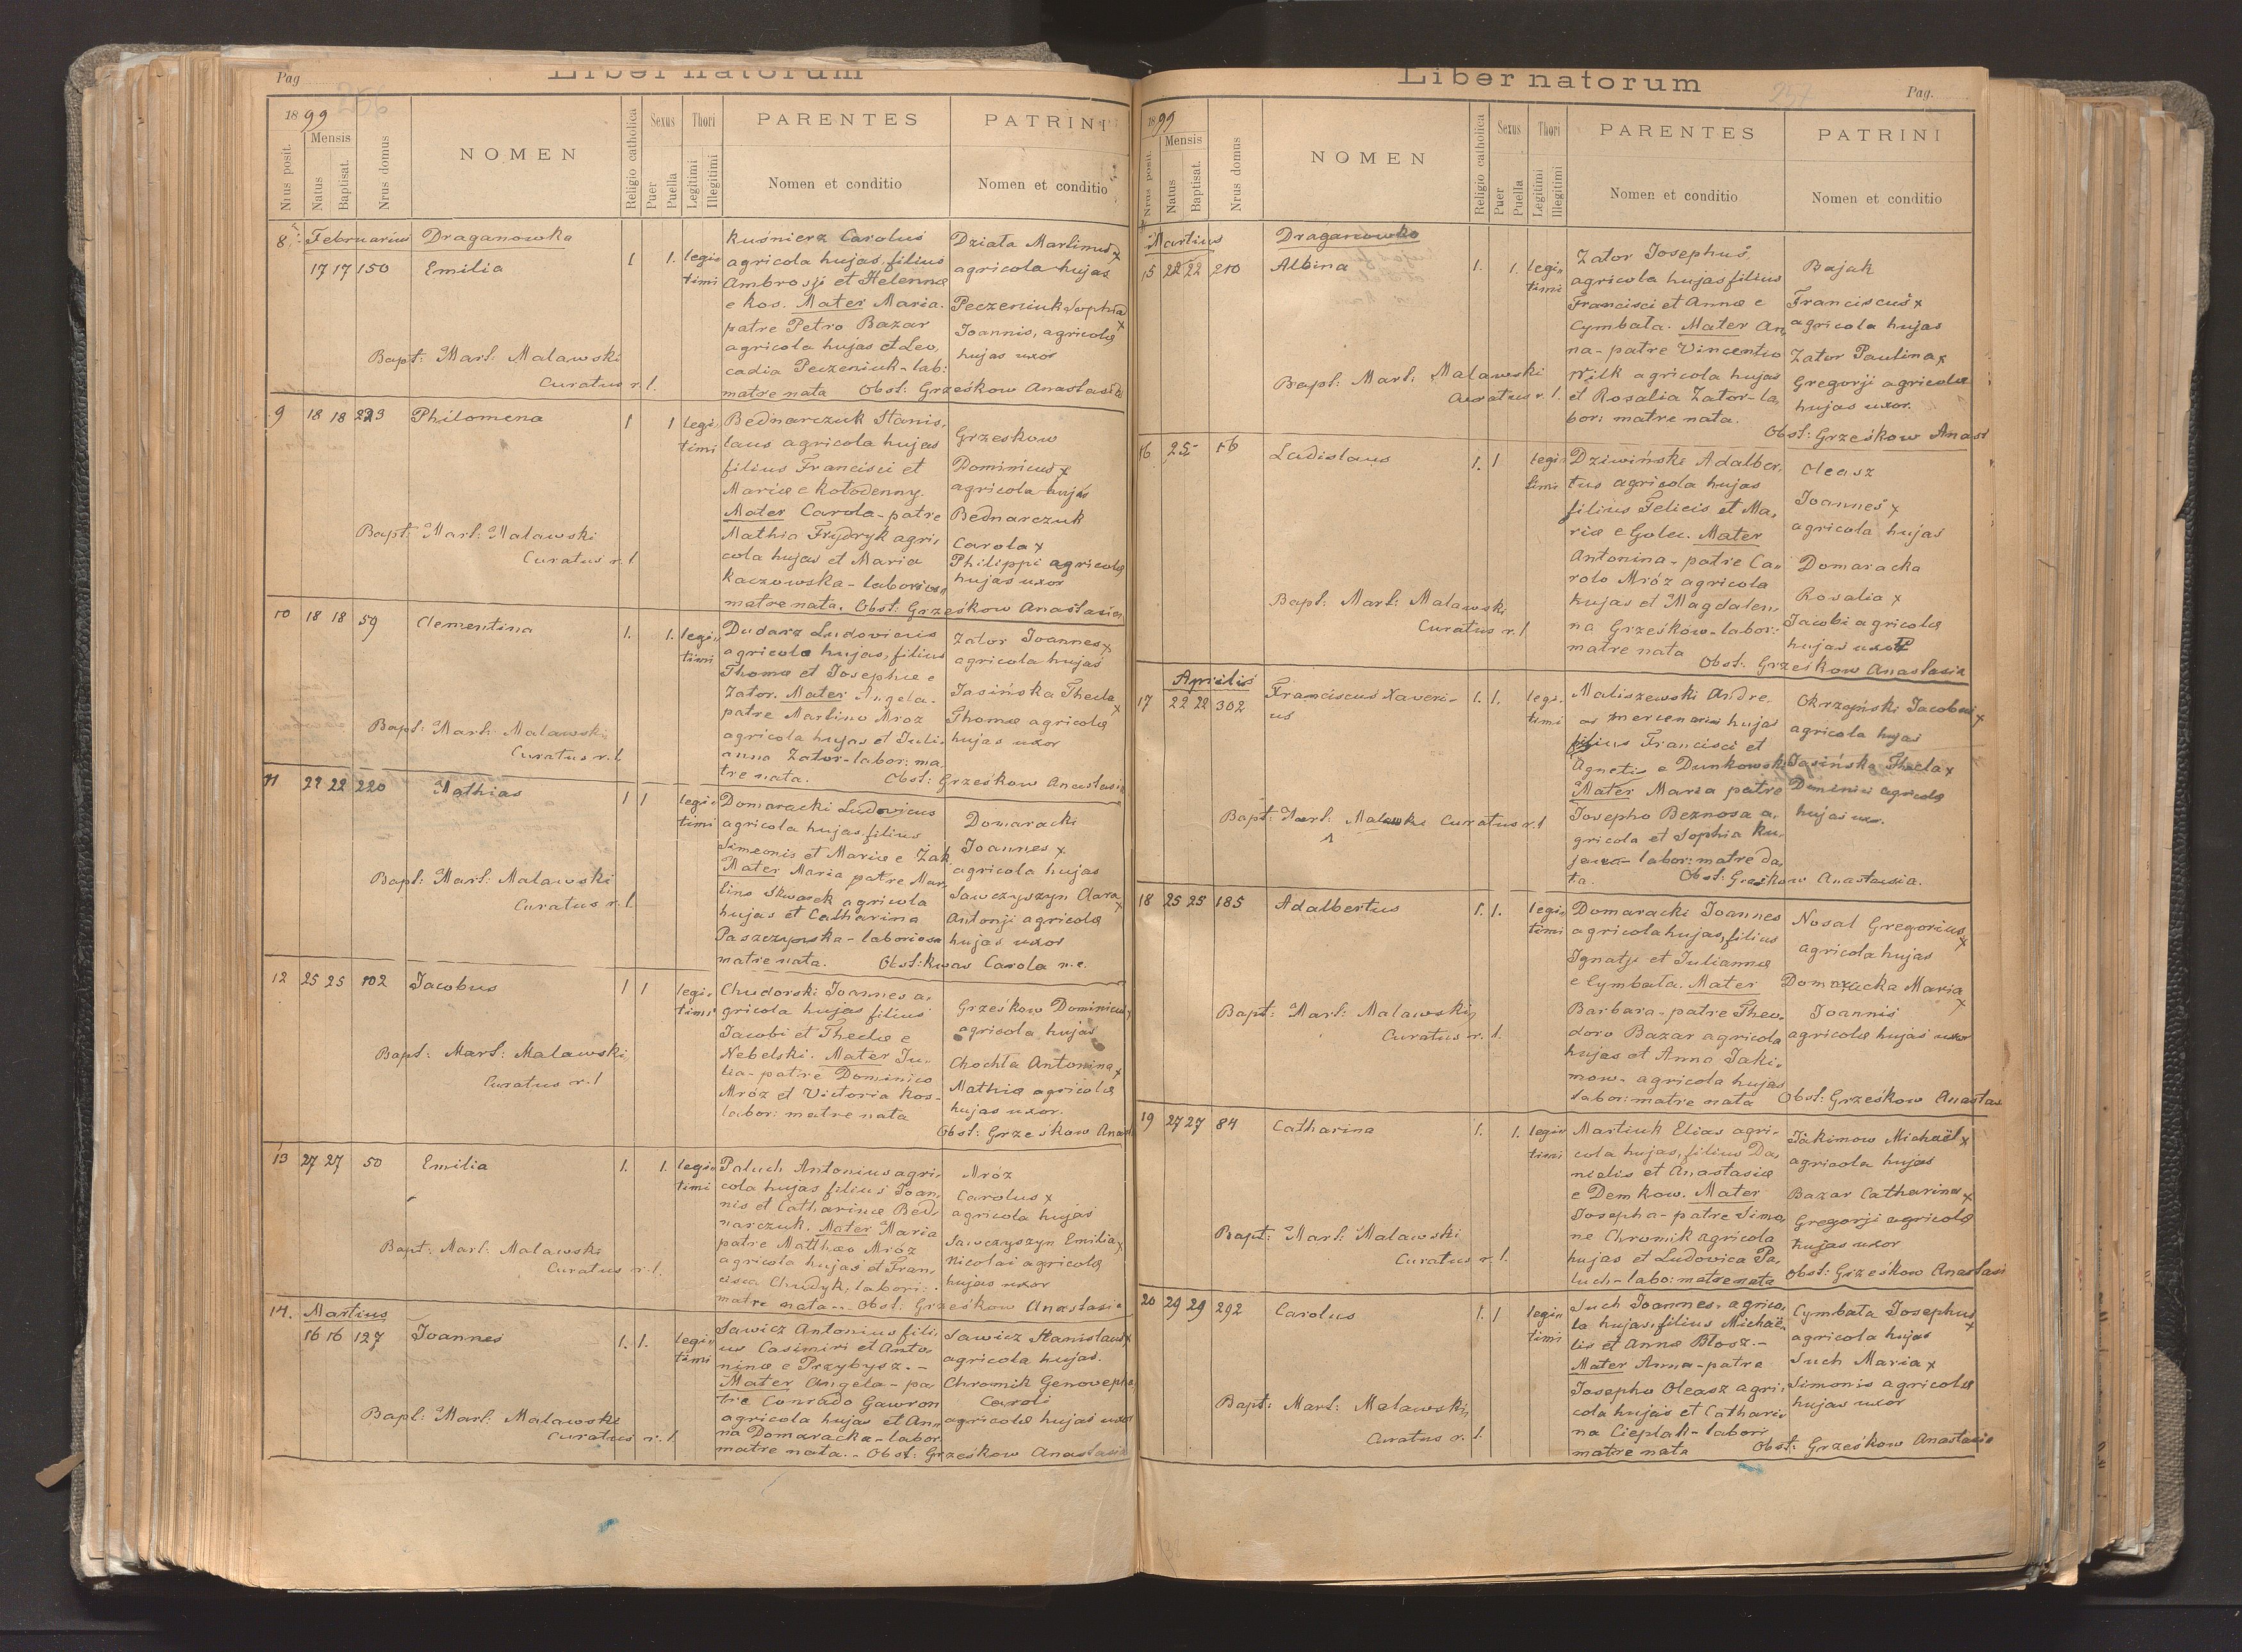 Pag
256
Liber natorum
1899
Nrus posit.
Mensis
Natus
Baptisat.
Nrus domus
NOMEN
Religio catholica
Sexus
Puer
Puella
Thori
Legitimi
Illegitimi
PARENTES
Nomen et conditio
PATRINI
Nomen et conditio
8. Februarius Draganowka
17 17 150 Emilia 1 1. legi-
timi
Kuśnierz Carolus
agricola hujas, filius
Ambrosji et Helennæ
e Kos. Mater Maria.
patre Petro Bazar
agricola hujas et Leo,
cadia Peczeniuk-lab:
matre nata Obst: Grześkow Anastasia
Działa Martinus x
agricola hujas
Peczeniuk Sophia x
Joannis, agricolæ
hujas uxor
Bapt: Mart: Malawski
Curatus r. l.
9 18 18 223 Philomena 1 1 legi-
timi
Bednarczuk Stanis,
laus agricola hujas
filius Francisci et
Mariæ e Kołodenny.
Mater Carola-patre
Mathia Frydryk agri,
cola hujas et Maria
Kaczowska-laboriosa
matre nata. Obst: Grześkow Anastasia
Grzeskow
Dominicus x
agricola hujas
Bednarczuk
Carola x
Philippi agricolæ
hujas uxor
Bapt: Mart: Malawski
Curatus r. l
10 18 18 59 Clementina 1. 1. legi-
timi
Dudarz Ludovicus
agricola hujas, filius
Thomæ et Josephæ e
Zator. Mater Angela-
patre Martino Mroz
agricola hujas et Juli-
anna Zator-labor: ma,
tre nata. Obst: Grześkow Anastasia
Zator Joannes x
agricola hujas
Jasińska Thecla x
Thomæ agricolæ
hujas uxor
Bapt: Mart: Malawski
Curatus r. l.
11 22 22 220 Mathias 1 1 legi-
timi
Domaracki Ludovicus
agricola hujas, filius
Simeonis et Mariæ e Żak
Mater Maria patre Mar,
tino Skwarek agricola
hujas et Catharina
Paszczyńska-laboriosa
matre nata. Obst: Kwas Carola n.e.
Domaracki
Joannes x
agricola hujas
Sawczyszyn Clara x
Antonji agricolæ
hujas uxor
Bapt: Mart: Malawski
Curatus r. l.
12 25 25 102 Jacobus 1 1 legi-
timi
Chudorski Joannes a,
gricola hujas filius
Jacobi et Theclæ e
Nebelski. Mater Ju,
lia-patre Dominico
Mróz et Victoria Kos-
labor: matre nata
Obst: Grześkow Anast
Grześkow Dominicus x
agricola hujas
Chochla Antonina x
Mathiæ agricolæ
hujas uxor.
Bapt: Mart: Malawski,
Curatus r. l
13 27 27 50 Emilia 1. 1. legi-
timi
Paluch Antonius agri,
cola hujas filius Joan,
nis et Catharinæ Bed,
narczuk. Mater Maria
patre Matthæo Mróz
agricola hujas et Fran,
cisca Chudyk: labori:
matre nata-. Obst: Grześkow Anastasia
Mróz
Carolus x
agricola hujas
Sawczyszyn Emilia x
Nicolai agricolæ
hujas uxor
Bapt: Mart: Malawski
Curatus r. l.
14. Martius
16 16 127 Joannes 1. 1. legi-
timi
Sawicz Antonius fili,
us Casimiri et Anto,
ninæ e Przybysz.-
Mater Angela-pa,
tre Conrado Gawron
agricola hujas et An,
na Domaracka-labor.
matre nata.- Obst: Grześkow Anastasia
Sawicz Stanislaus x
agricola hujas.
Chromik Genovepha
Caroli
agricolæ hujas uxor
Bapt: Mart: Malawski
Curatus r. l.
Liber natorum
257
Pag.
1899
Nrus posit.
Mensis
Natus
Baptisat.
Nrus domus
NOMEN
Religio catholica
Sexus
Puer
Puella
Thori
Legitimi
Illegitimi
PARENTES
Nomen et conditio
PATRINI
Nomen et conditio
Martius Draganowka
15 22 22 210 Albina 1. 1. legi-
timi
Zator Josephus
agricola hujas filius
Francisci et Annæ e
Cymbała. Mater An,
na-patre Vincentio
Wilk agricola hujas
et Rosalia Zator-la,
bor: matre nata.
Obst: Grześkow Anast
Bajak
Franciscus x
agricola hujas
Zator Paulina x
Gregorji agricolæ
hujas uxor.
Bapt: Mart: Malawski
Curatus r. l.
16 25 16 Ladislaus 1. 1 legi-
timi
Dziwiński Adalber,
tus agricola hujas
filius Felicis et Ma,
riæ e Golec. Mater
Antonina-patre Ca,
rolo Mróz agricola
hujas et Magdalen,
na Grześków-labor:
matre nata
Obst: Grześkow Anastasia
Oleasz
Joannes x
agricola hujas
Domaracka
Rosalia x
Jacobi agricolæ
hujas uxor
Bapt: Mart: Malawski
Curatus r. l
Aprilis
17 22 22 302 Franciscus Xaveri-
us 1. 1. legi-
timi
Maliszewski Andre,
as mercenarius hujas
filius Francisci et
Agnetis e Dunkowski
Mater Maria patre
Josepho Beznosa a,
gricola et Sophia Ku,
jawa-labor: matre na,
ta. Obst: Grześkow Anastasia.
Okrzyński Jacobus x
agricola hujas
Jasińska Thecla x
Dominici agricolæ
hujas uxor.
Bapt: Mart: Malawski Curatus r. l
18 25 25 185 Adalbertus 1. 1. legi-
timi
Domaracki Joannes
agricola hujas, filius
Ignatji et Juliannæ
e Cymbała. Mater
Barbara-patre Theo,
doro Bazar agricola
hujas et Anna Jaki-
mow-agricola hujas
labor: matre nata Obst: Grześkow Anastas
Nosal Gregorius x
agricola hujas
Domaracka Maria x
Joannis
agricolæ hujas uxor
Bapt: Mart: Malawski,
Curatus r. l.
19 27 27 84 Catharina 1. 1. legi-
timi
Martiuk Elias agri-
cola hujas, filius Da,
nielis et Anastasiæ
e Demkow. Mater
Josepha-patre Simo,
ne Chromik agricola
hujas et Ludovica Pa,
luch-labo: matre nata
Jakimow Michaël x
agricola hujas
Bazar Catharina x
Gregorji agricolæ
hujas uxor
Obst: Grześkow Anastasi
Bapt: Mart: Malawski
Curatus r. l.
20 29 29 292 Carolus 1. 1 legi-
timi
Such Joannes, agrico,
la hujas, filius Michaë-
lis et Annæ Błosz.-
Mater Anna-patre
Josepho Oleasz agri,
cola hujas et Cathari-
na Cieplak-labori
matre nata Obst: Grześkow Anastasia
Cymbała Josephus x
agricola hujas
Such Maria x
Simonis agricolæ
hujas uxor
Bapt: Mart: Malawski,
Curatus r. l.